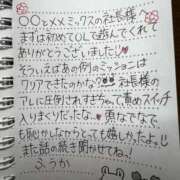 〇〇と××ミックスの社長様♡
まずは初めてOLで遊んでくれて
ありがとうございました!♡
そういえばあの例のミッションは
クリアできたのかな?社長様の
アレに圧倒されすぎちゃって、責めスイッチ
入りまくりだったな♡ 鼻なでなで
も恥ずかしながらとても嬉しかったよ。
また話の続き聞かせてね♪
ふうか